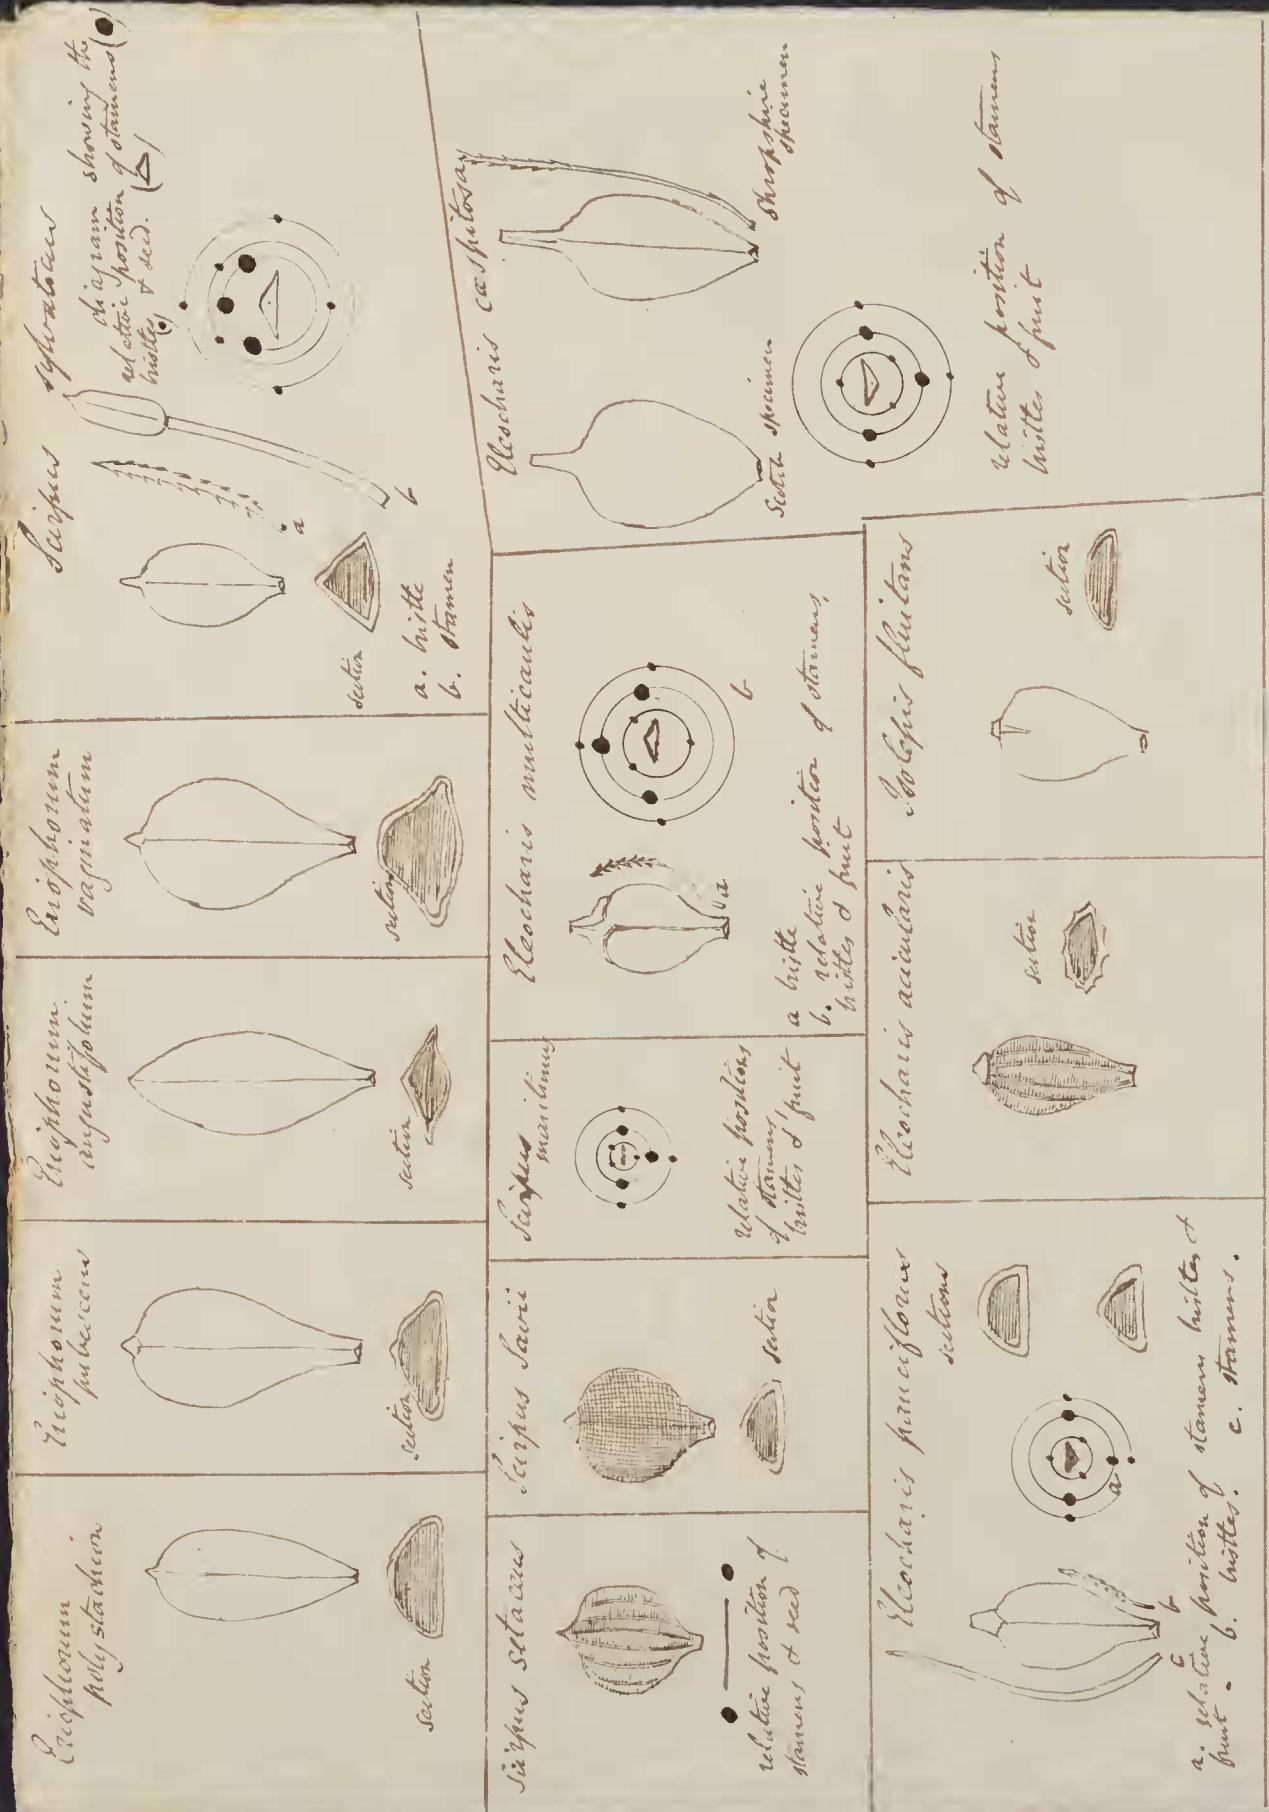 Eriophorum
polystachion
section
Eriophorum
pubescens
section
Eriophorum
angustifolium
section
Eriophorum
vaginatum
section
Scirpus sylvaticus
diagram showing the
relative position of stamens (●)
bristles (•) & seed. (△)
a
b
section
a. bristle
b. stamen
Scirpus setaceus
relative position of
stamens & seed
Scirpus Savii
section
Scirpus
maritimus
relative positions
of stamens,
bristles & fruit
Eleocharis multicaulis
a
b
a bristle
b. relative position of stamens,
bristles & fruit
Eleocharis cæspitosa
Scotch specimen
Shropshire
specimen
relative position of stamens
bristles & fruit
Eleocharis pauciflorus
sections
c
b
a
a. relative position of stamens bristles &
fruit - b. bristles. c. stamens.
Eleocharis acicularis
section
Isolepis fluitans
section